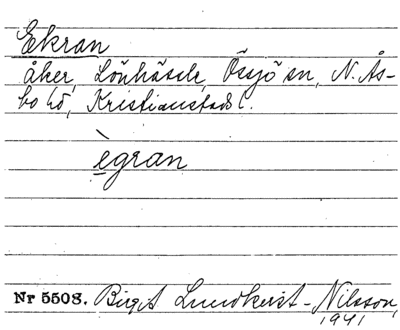 Ekran
åker, Lönhäsele, Össjö sn, N. Ås-
bo hd, Kristianstads l.
ègran
Nr 5508. Birgit Lundkvist-Nilsson,
1941